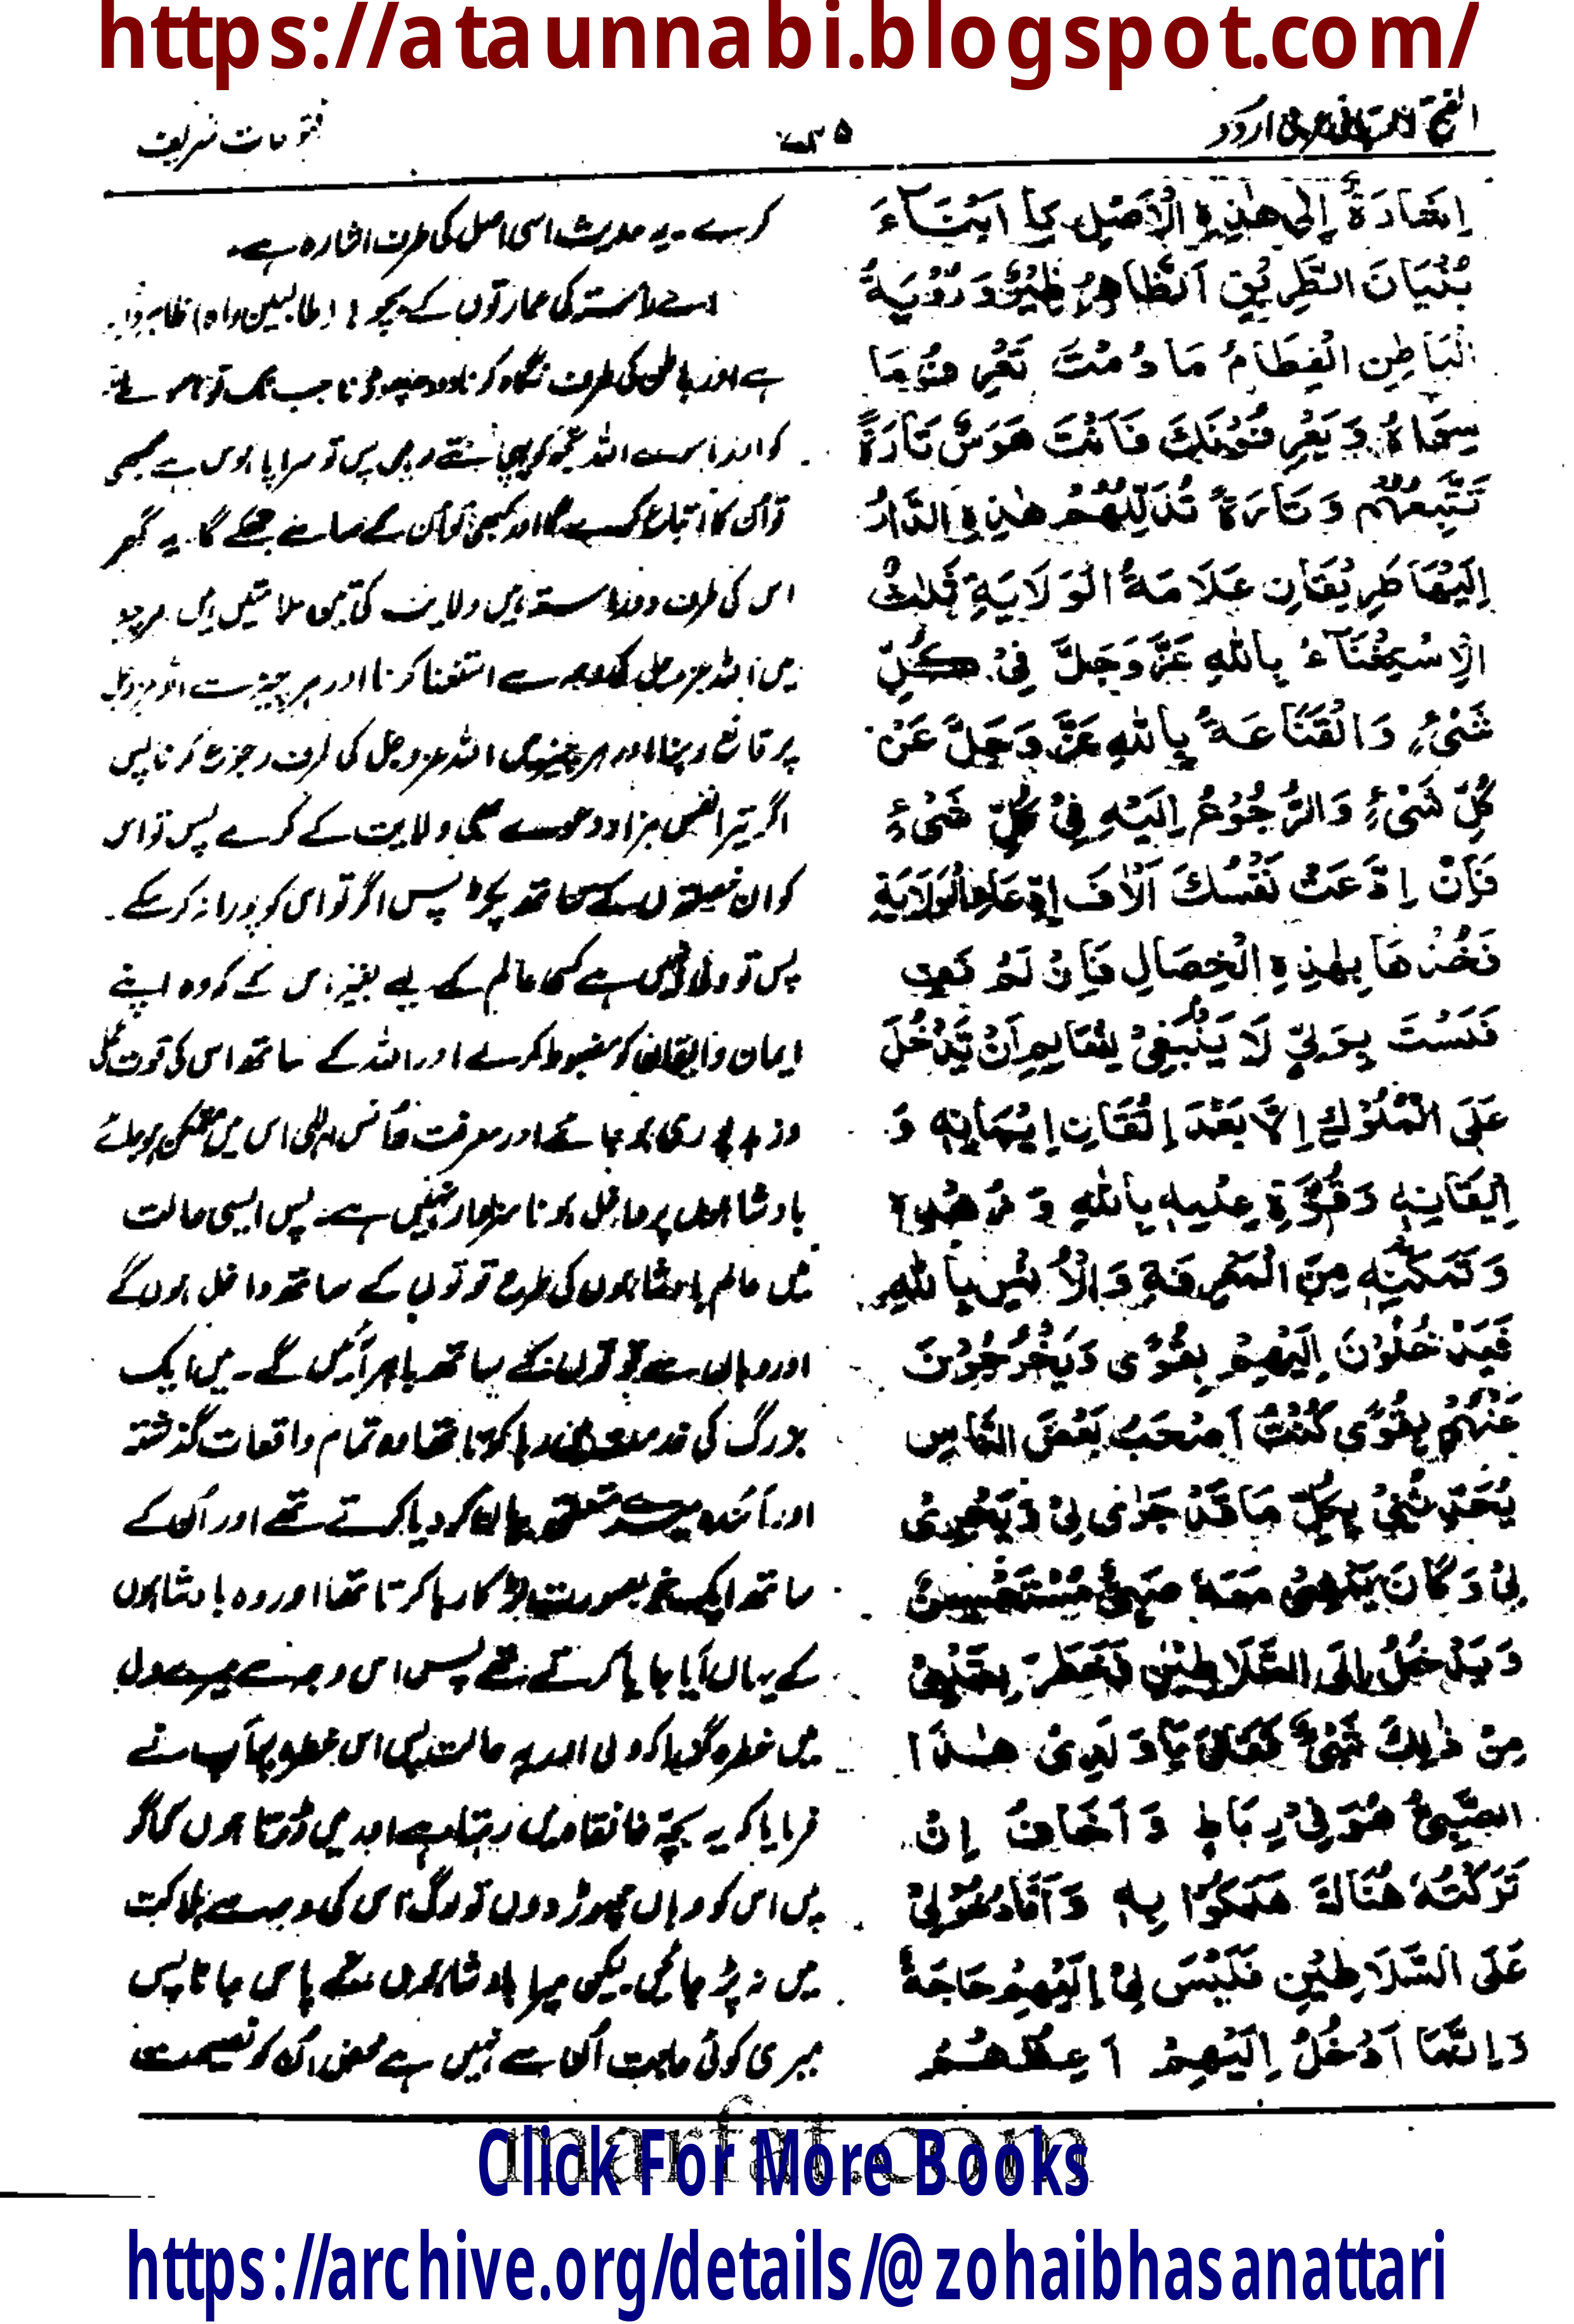 https://ataunnabi.blogspot.com/
الفتح الربانی عربی اردو
فتوحات شریف
اِشَارَةٌ إِلَى هٰذِهِ الْاَصْلِ يَا اَبْنَاءَ
بُنْيَانَ الطَّرِيْقِ اَلظَّاهِرُ وَرُؤْيَةُ
الْبَاطِنِ الْفِطَامُ مَا دُمْتَ تَعْرِفُ مَا
سِوَاهُ وَيَعْرِفُوْنَكَ فَاَنْتَ هَوَسٌ تَارَةً
تَتَّبِعُهُمْ وَتَارَةً تُذَلِّلُهُمْ هٰذِهِ الدَّارُ
اِلَيْهَا طَرِيْقَانِ عَلَامَةُ الْوَلَايَةِ ثَلٰثٌ
الْاِسْتِغْنَآءُ بِاللهِ عَزَّوَجَلَّ فِىْ كُلِّ
شَىْءٍ وَالْقَنَاعَةُ بِاللهِ عَزَّ وَجَلَّ عَنْ
كُلِّ شَىْءٍ وَالرُّجُوْعُ اِلَيْهِ فِىْ كُلِّ شَىْءٍ
فَاِنْ اِدَّعَتْ نَفْسُكَ الْوَلَايَةِ
فَخُذْهَا بِهٰذِهِ الْخِصَالِ فَاِنْ لَمْ تَفِ
فَلَسْتَ بِوَلِيٍّ لَا يَنْبَغِىْ لِلْعَالِمِ اَنْ يَّدْخُلَ
عَلَى الْمُلُوْكِ اِلَّا بَعْدَ اِتْقَانِ اِيْمَانِهٖ وَ
اِيْقَانِهٖ وَقُوَّةِ عِلْمِهٖ بِاللهِ وَزُهْدِهٖ
وَتَمَكُّنِهٖ مِنَ الْمَعْرِفَةِ وَالْاُنْسِ بِاللهِ
فَيَدْخُلُوْنَ اِلَيْهِمْ بِقُوًى وَيَخْرُجُوْنَ
عَنْهُمْ بِقُوًى كُنْتُ اَصْحَبُ بَعْضَ النَّاسِ
يُحَدِّثُنِىْ بِكُلِّ مَا قَدْ جَرٰى لِىْ وَيَجْرِىْ
لِىْ وَكَانَ يَمْشِىْ مَعَهٗ صَبِىٌّ مُسْتَحْسَنٌ
وَيَدْخُلُ اِلَى السَّلَاطِيْنِ فَخَطَرَ بِقَلْبِىْ
مِنْ ذٰلِكَ شَىْءٌ فَقَالَ يَا وَلَدِىْ هٰذَا
الصَّبِىُّ هُوَ فِىْ رِبَاطٍ وَاَخَافُ اِنْ
تَرَكْتُهٗ هُنَالِكَ هَلَكُوْا بِهٖ وَاَمَّا دُخُوْلِىْ
عَلَى السَّلَاطِيْنِ فَلَيْسَ لِىْ اِلَيْهِمْ حَاجَةٌ
وَاِنَّمَا اَدْخُلُ اِلَيْهِمْ اَعِظُهُمْ
کرے۔ یہ حدیث اسی اصل کی طرف اشارہ ہے۔
اے راستہ کی عمارتوں کے بچو! (طالبین راہ) ظاہر
ہے اور باطن کی طرف نگاہ کرنا دودھ چھوڑنا جب تک تو ماسوے اللہ
کو اور ماسوے اللہ تجھ کو پہچانتے رہیں پس تو سراپا ہوس ہے کبھی
تو اُن کا اتباع کرے گا اور کبھی تو اُن کے سامنے جھکے گا۔ یہ گھر
اس کی طرف دو راستے ہیں ولایت کی تین علامتیں ہیں ہر چیز
میں اللہ عزوجل کی وجہ سے استغنا کرنا اور ہر چیز سے اللہ عزوجل
پر قانع رہنا اور ہر چیز میں اللہ عزوجل کی طرف رجوع کرنا پس
اگر تیرا نفس ہزار دعوے بھی ولایت کے کرے پس تو اس
کو ان خصلتوں کے ساتھ پکڑ پس اگر تو اس کو پورا نہ کر سکے۔
پس تو ولی نہیں ہے کسی عالم کے لیے بغیر اس کے کہ وہ اپنے
ایمان وایقان کو مضبوط کرے اور اللہ کے ساتھ اس کی قوت
وزہد پوری ہو جائے اور معرفت و اُنس الٰہی اس میں متمکن ہو جائے
بادشاہوں پر داخل ہونا سزاوار نہیں ہے۔ پس ایسی حالت
میں عالم بادشاہوں کی طرف قوتوں کے ساتھ داخل ہوں گے
اور وہاں سے قوتوں کے ساتھ باہر آئیں گے۔ میں ایک
بزرگ کی خدمت میں رہا کرتا تھا وہ تمام واقعات گذشتہ
اور آئندہ میرے متعلق بیان کر دیا کرتے تھے اور اُن کے
ساتھ ایک خوبصورت لڑکا رہا کرتا تھا اور وہ بادشاہوں
کے یہاں آیا جایا کرتے تھے پس اس وجہ سے میرے دل
میں خطرہ گذرا کہ ولی اور یہ حالت پس اس خطرہ پر آپ نے
فرمایا کہ یہ بچہ خانقاہ میں رہتا ہے اور میں ڈرتا ہوں کہ اگر
میں اس کو وہاں چھوڑ دوں تو لوگ اس کی وجہ سے ہلاکت
میں نہ پڑ جائیں لیکن میرا بادشاہوں کے پاس جانا پس
میری کوئی حاجت اُن سے نہیں ہے محض اُن کو نصیحت
marfat.com
Click For More Books
https://archive.org/details/@zohaibhasanattari